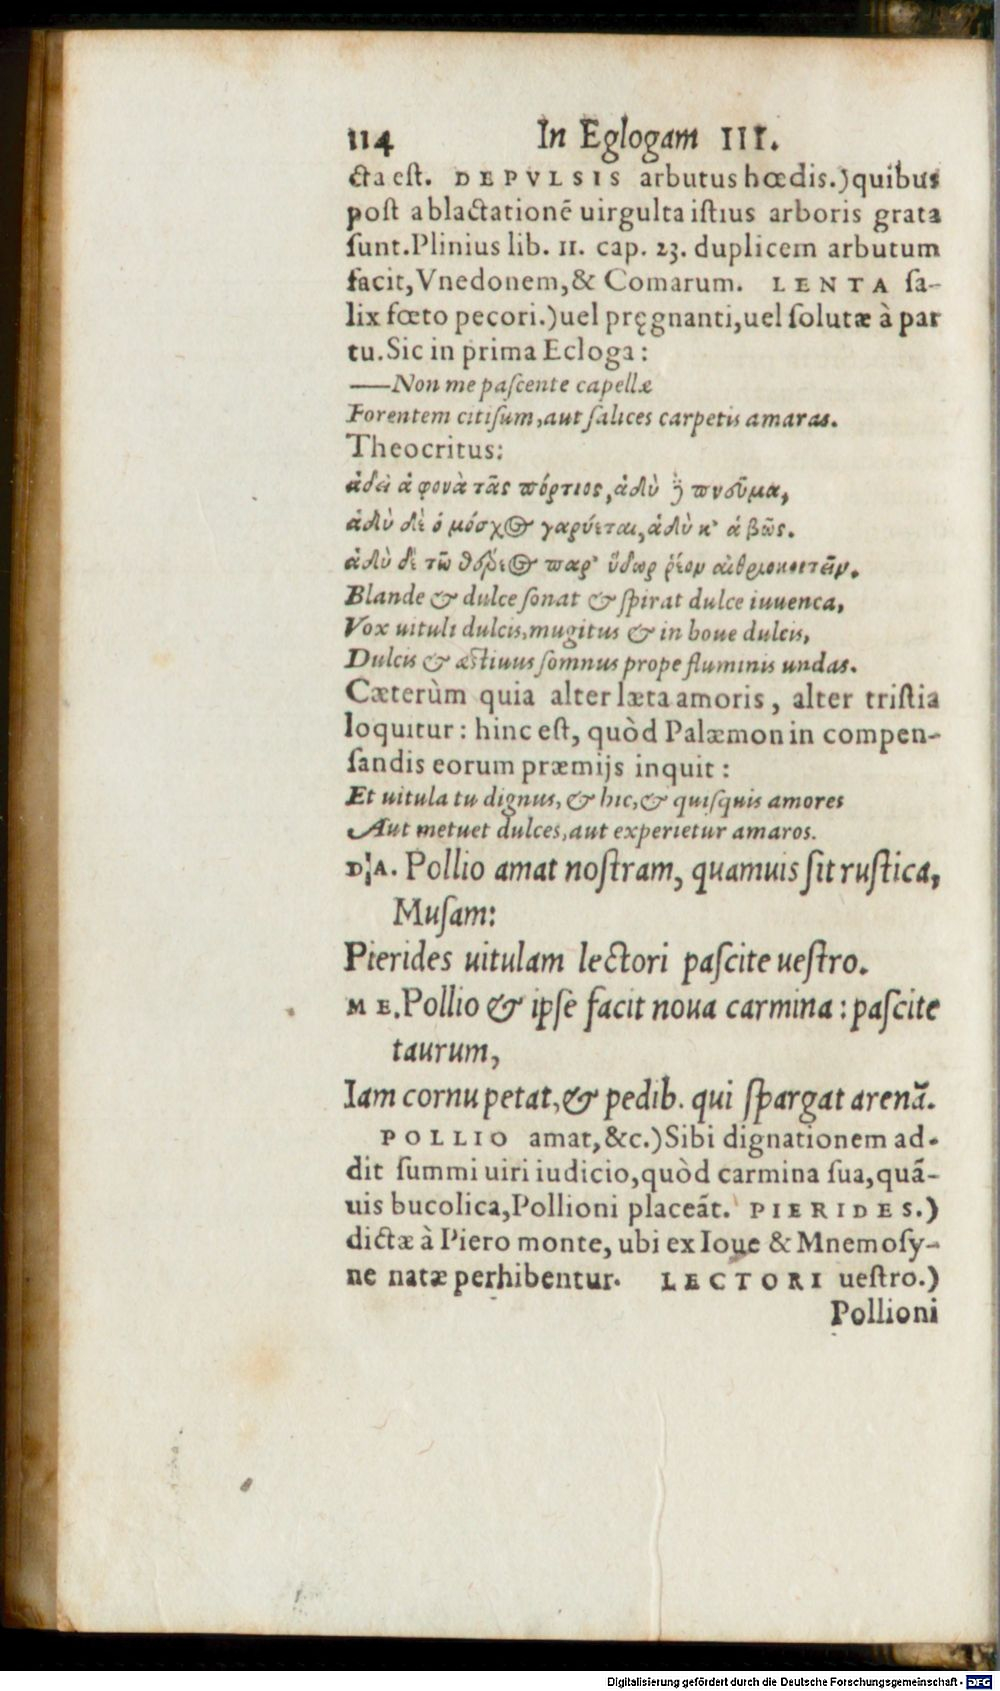 114 In Eglogam III.
cta est. DEPVLSIS arbutus hœdis.) quibus
post ablactationē uirgulta istius arboris grata
sunt. Plinius lib. 11. cap. 23. duplicem arbutum
facit, Vnedonem, & Comarum. LENTA sa-
lix fœto pecori.) uel pręgnanti, uel solutæ à par
tu. Sic in prima Ecloga:
—Non me pascente capellæ
Forentem citisum, aut salices carpetis amaras.
Theocritus:
ἁδεῖ ἁ φονὰ τᾶς πόρτιος, ἁδὺ τὸ πνεῦμα,
ἁδὺ δὲ ὁ μόσχος γαρύεται, ἁδὺ κ' ἁ βῶς.
ἁδὺ δὲ τῶ θέρεος παρ' ὕδωρ ῥέον αἰθριοκοιτεῖν.
Blande & dulce sonat & spirat dulce iuuenca,
Vox uituli dulcis, mugitus & in boue dulcis,
Dulcis & æstiuus somnus prope fluminis undas.
Cæterùm quia alter læta amoris, alter tristia
loquitur: hinc est, quòd Palæmon in compen-
sandis eorum præmijs inquit:
Et uitula tu dignus, & hic, & quisquis amores
Aut metuet dulces, aut experietur amaros.
DA. Pollio amat nostram, quamuis sit rustica,
Musam:
Pierides uitulam lectori pascite uestro.
ME. Pollio & ipse facit noua carmina: pascite
taurum,
Iam cornu petat, & pedib. qui spargat arenā.
POLLIO amat, &c.) Sibi dignationem ad-
dit summi uiri iudicio, quòd carmina sua, quā-
uis bucolica, Pollioni placeāt. PIERIDES.)
dictæ à Piero monte, ubi ex Ioue & Mnemosy-
ne natæ perhibentur. LECTORI uestro.)
Pollioni
Digitalisierung gefördert durch die Deutsche Forschungsgemeinschaft - DFG